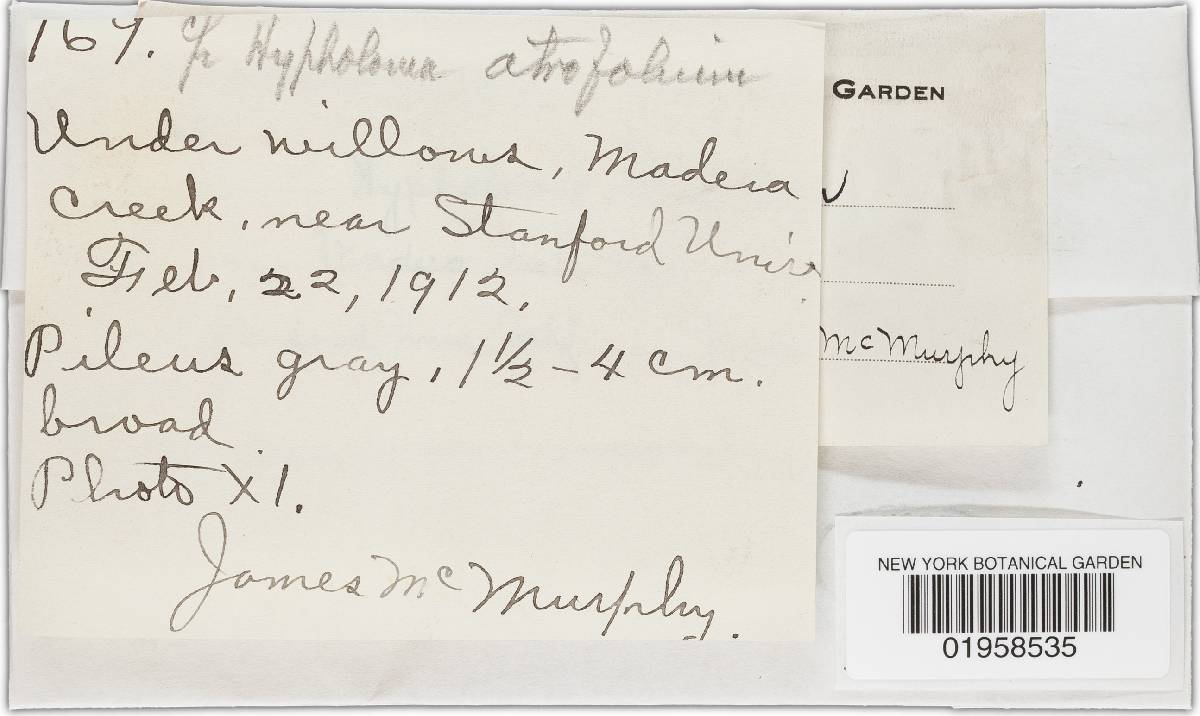 167. Cf Hypholoma atrofolium
Under willows, Madera
Creek, near Stanford Univ.
Feb, 22, 1912.
Pileus gray, 1½ - 4 cm.
broad
Photo X1.
James McMurphy.
GARDEN
McMurphy
NEW YORK BOTANICAL GARDEN
01958535